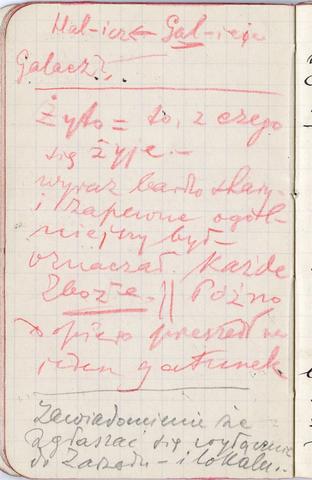 Hal-icz ← Gal-icja
Galacz?
Żyto = to, z czego
się żyje. –
wyraz bardzo stary
i zapewne ogól-
niejszy był –
oznaczał każde
zboże. || Późno
dopiero przeszedł na
jeden gatunek
Zawiadomienie że
zgłaszać się wyłącznie
do Zarządu – i lokalu..